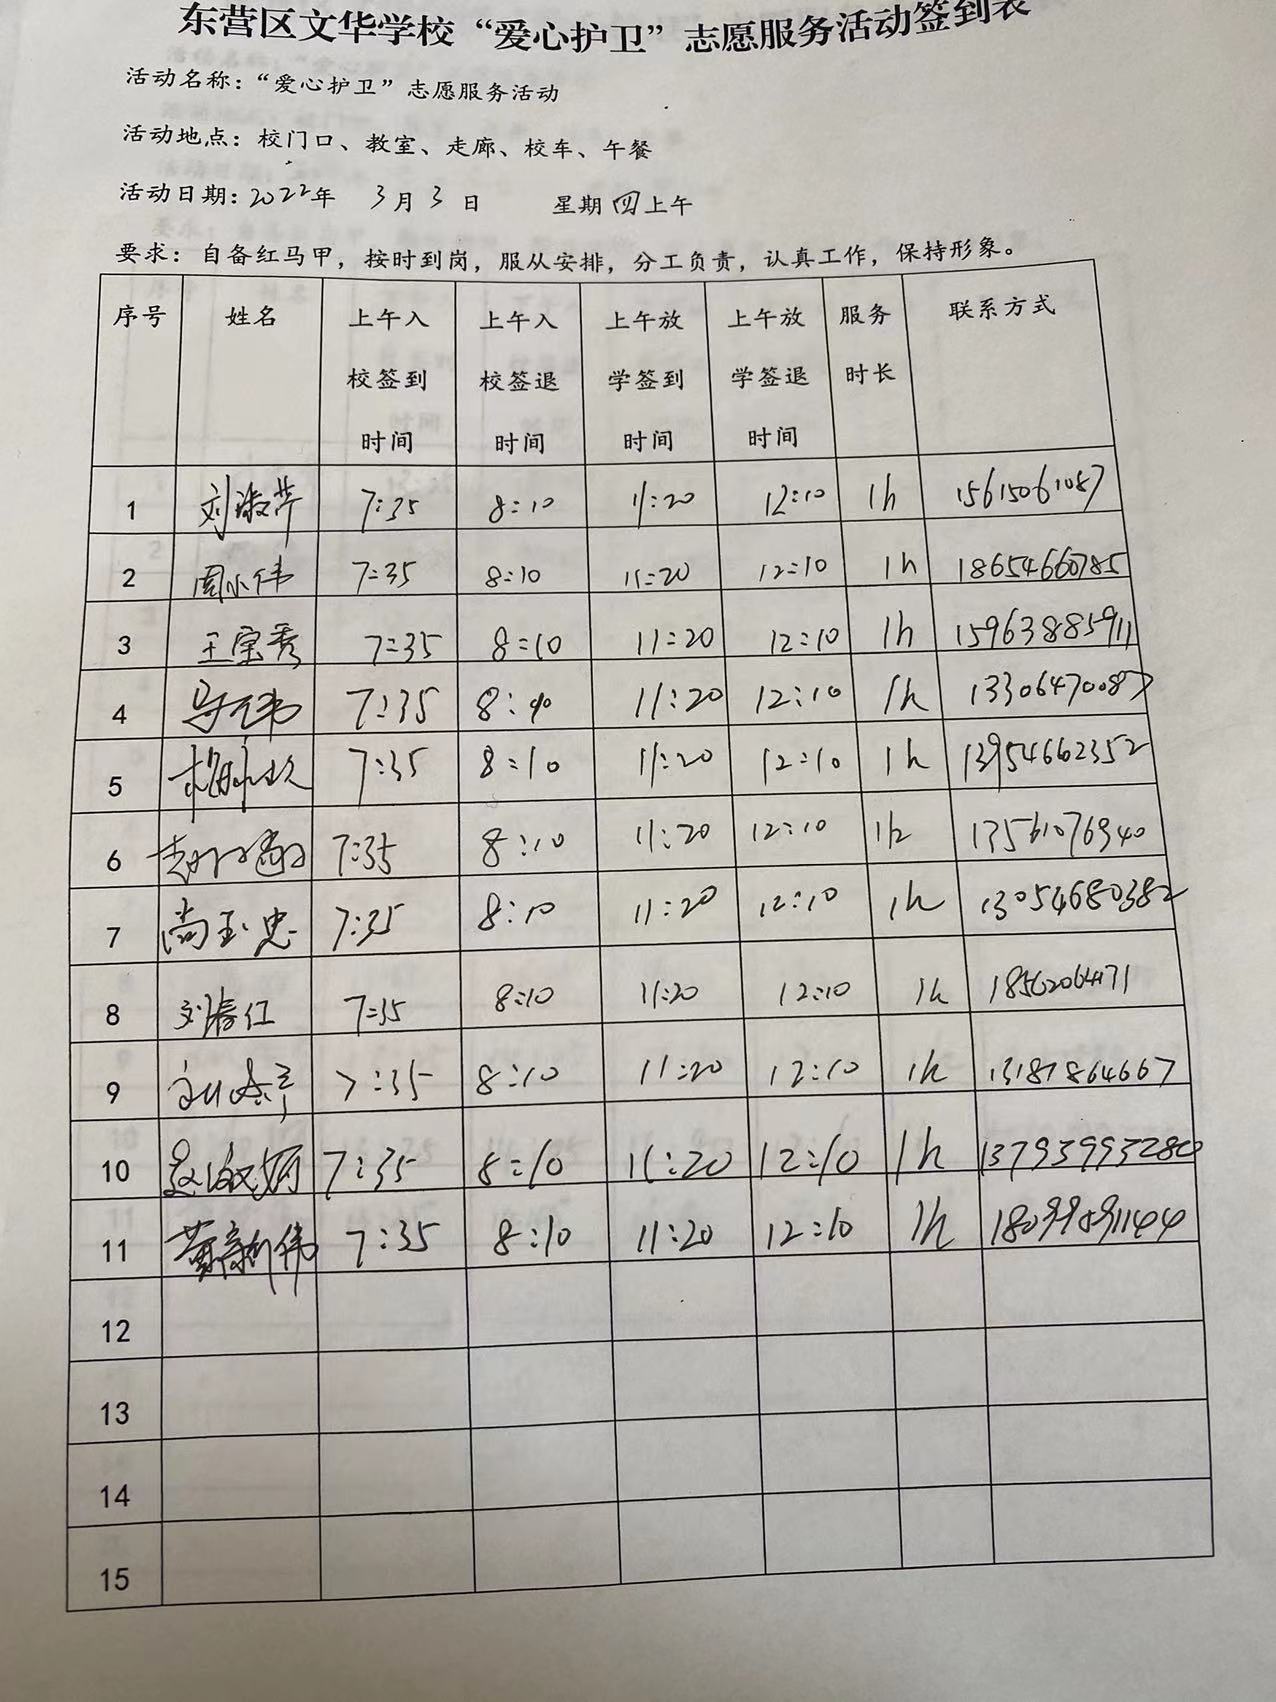 东营区文华学校“爱心护卫”志愿服务活动签到表
活动名称：“爱心护卫”志愿服务活动
活动地点：校门口、教室、走廊、校车、午餐
活动日期：2022年 3月3日 星期四上午
要求：自备红马甲，按时到岗，服从安排，分工负责，认真工作，保持形象。
序号 姓名 上午入校签到时间 上午入校签退时间 上午放学签到时间 上午放学签退时间 服务时长 联系方式
1 刘淑芹 7:35 8:10 11:20 12:10 1h 15615061087
2 周小伟 7:35 8:10 11:20 12:10 1h 18654660785
3 王宝秀 7:35 8:10 11:20 12:10 1h 15963885911
4 7:35 8:10 11:20 12:10 1h 13306470087
5 7:35 8:10 11:20 12:10 1h 13954662352
6 7:35 8:10 11:20 12:10 1h 13561076940
7 尚玉忠 7:35 8:10 11:20 12:10 1h 13054680382
8 刘春红 7:35 8:10 11:20 12:10 1h 18562064171
9 7:35 8:10 11:20 12:10 1h 13181864667
10 7:35 8:10 11:20 12:10 1h 13793993280
11 黄新伟 7:35 8:10 11:20 12:10 1h
12
13
14
15